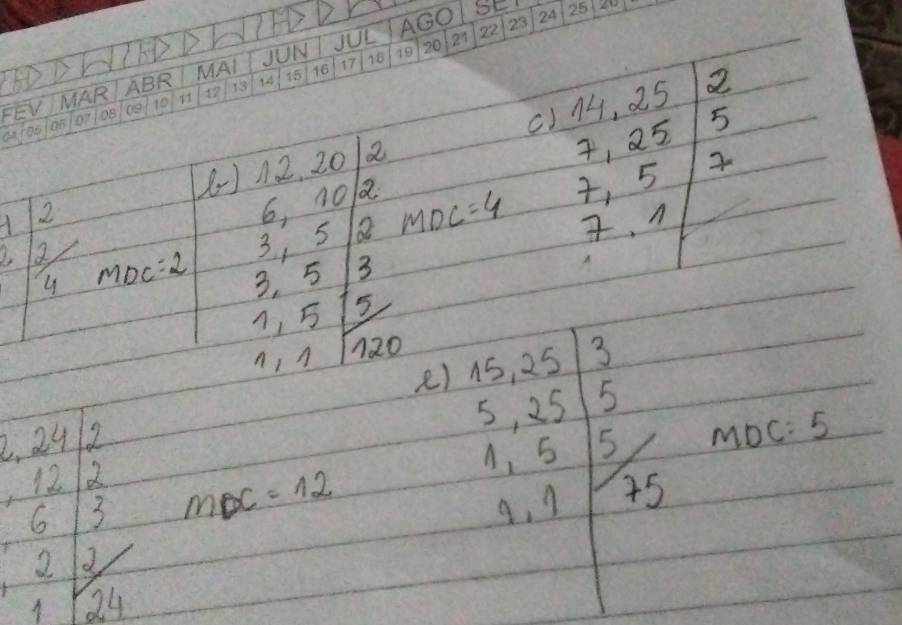 FEV MAR ABR MAI JUN JUL AGO SET
04 05 06 07 08 09 10 11 12 13 14 15 16 17 18 19 20 21 22 23 24 25 26
2
2
4 MDC=2
b) 12,20 2
6, 10 2
3, 5 2 MDC=4
3, 5 3
1, 5 5
1, 1 120
c) 14,25 2
7, 25 5
7, 5 7
7, 1
2, 24 2
, 12 2
6 3
2 2
1 24
MDC=12
e) 15,25 3
5, 25 5
1, 5 5
1, 1 75
MDC: 5